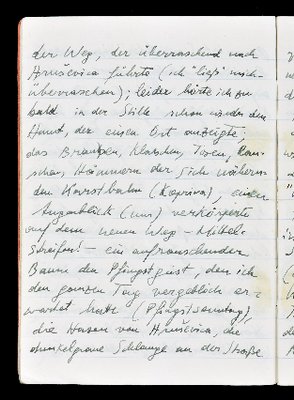 der Weg, der überraschend nach
Hruševica führte (ich "ließ" mich
überraschen); leider hörte ich zu
bald in der Stille schon wieder den
Hund, der einen Ort anzeigte,
das Brausen, Klatschen, Tosen,
Hämmern der sich nähern-
den Karstbahn (Kopriva), einen
Augenblick (nur) verkörperte
auf dem neuen Weg – Nebel-
streifen! – ein aufrauschender
Baum den Pfingstgeist, den ich
den ganzen Tag vergeblich er-
wartet hatte (Pfingstsonntag),
die Hasen von Hruševica, die
dunkelgraue Schlange an der Straße